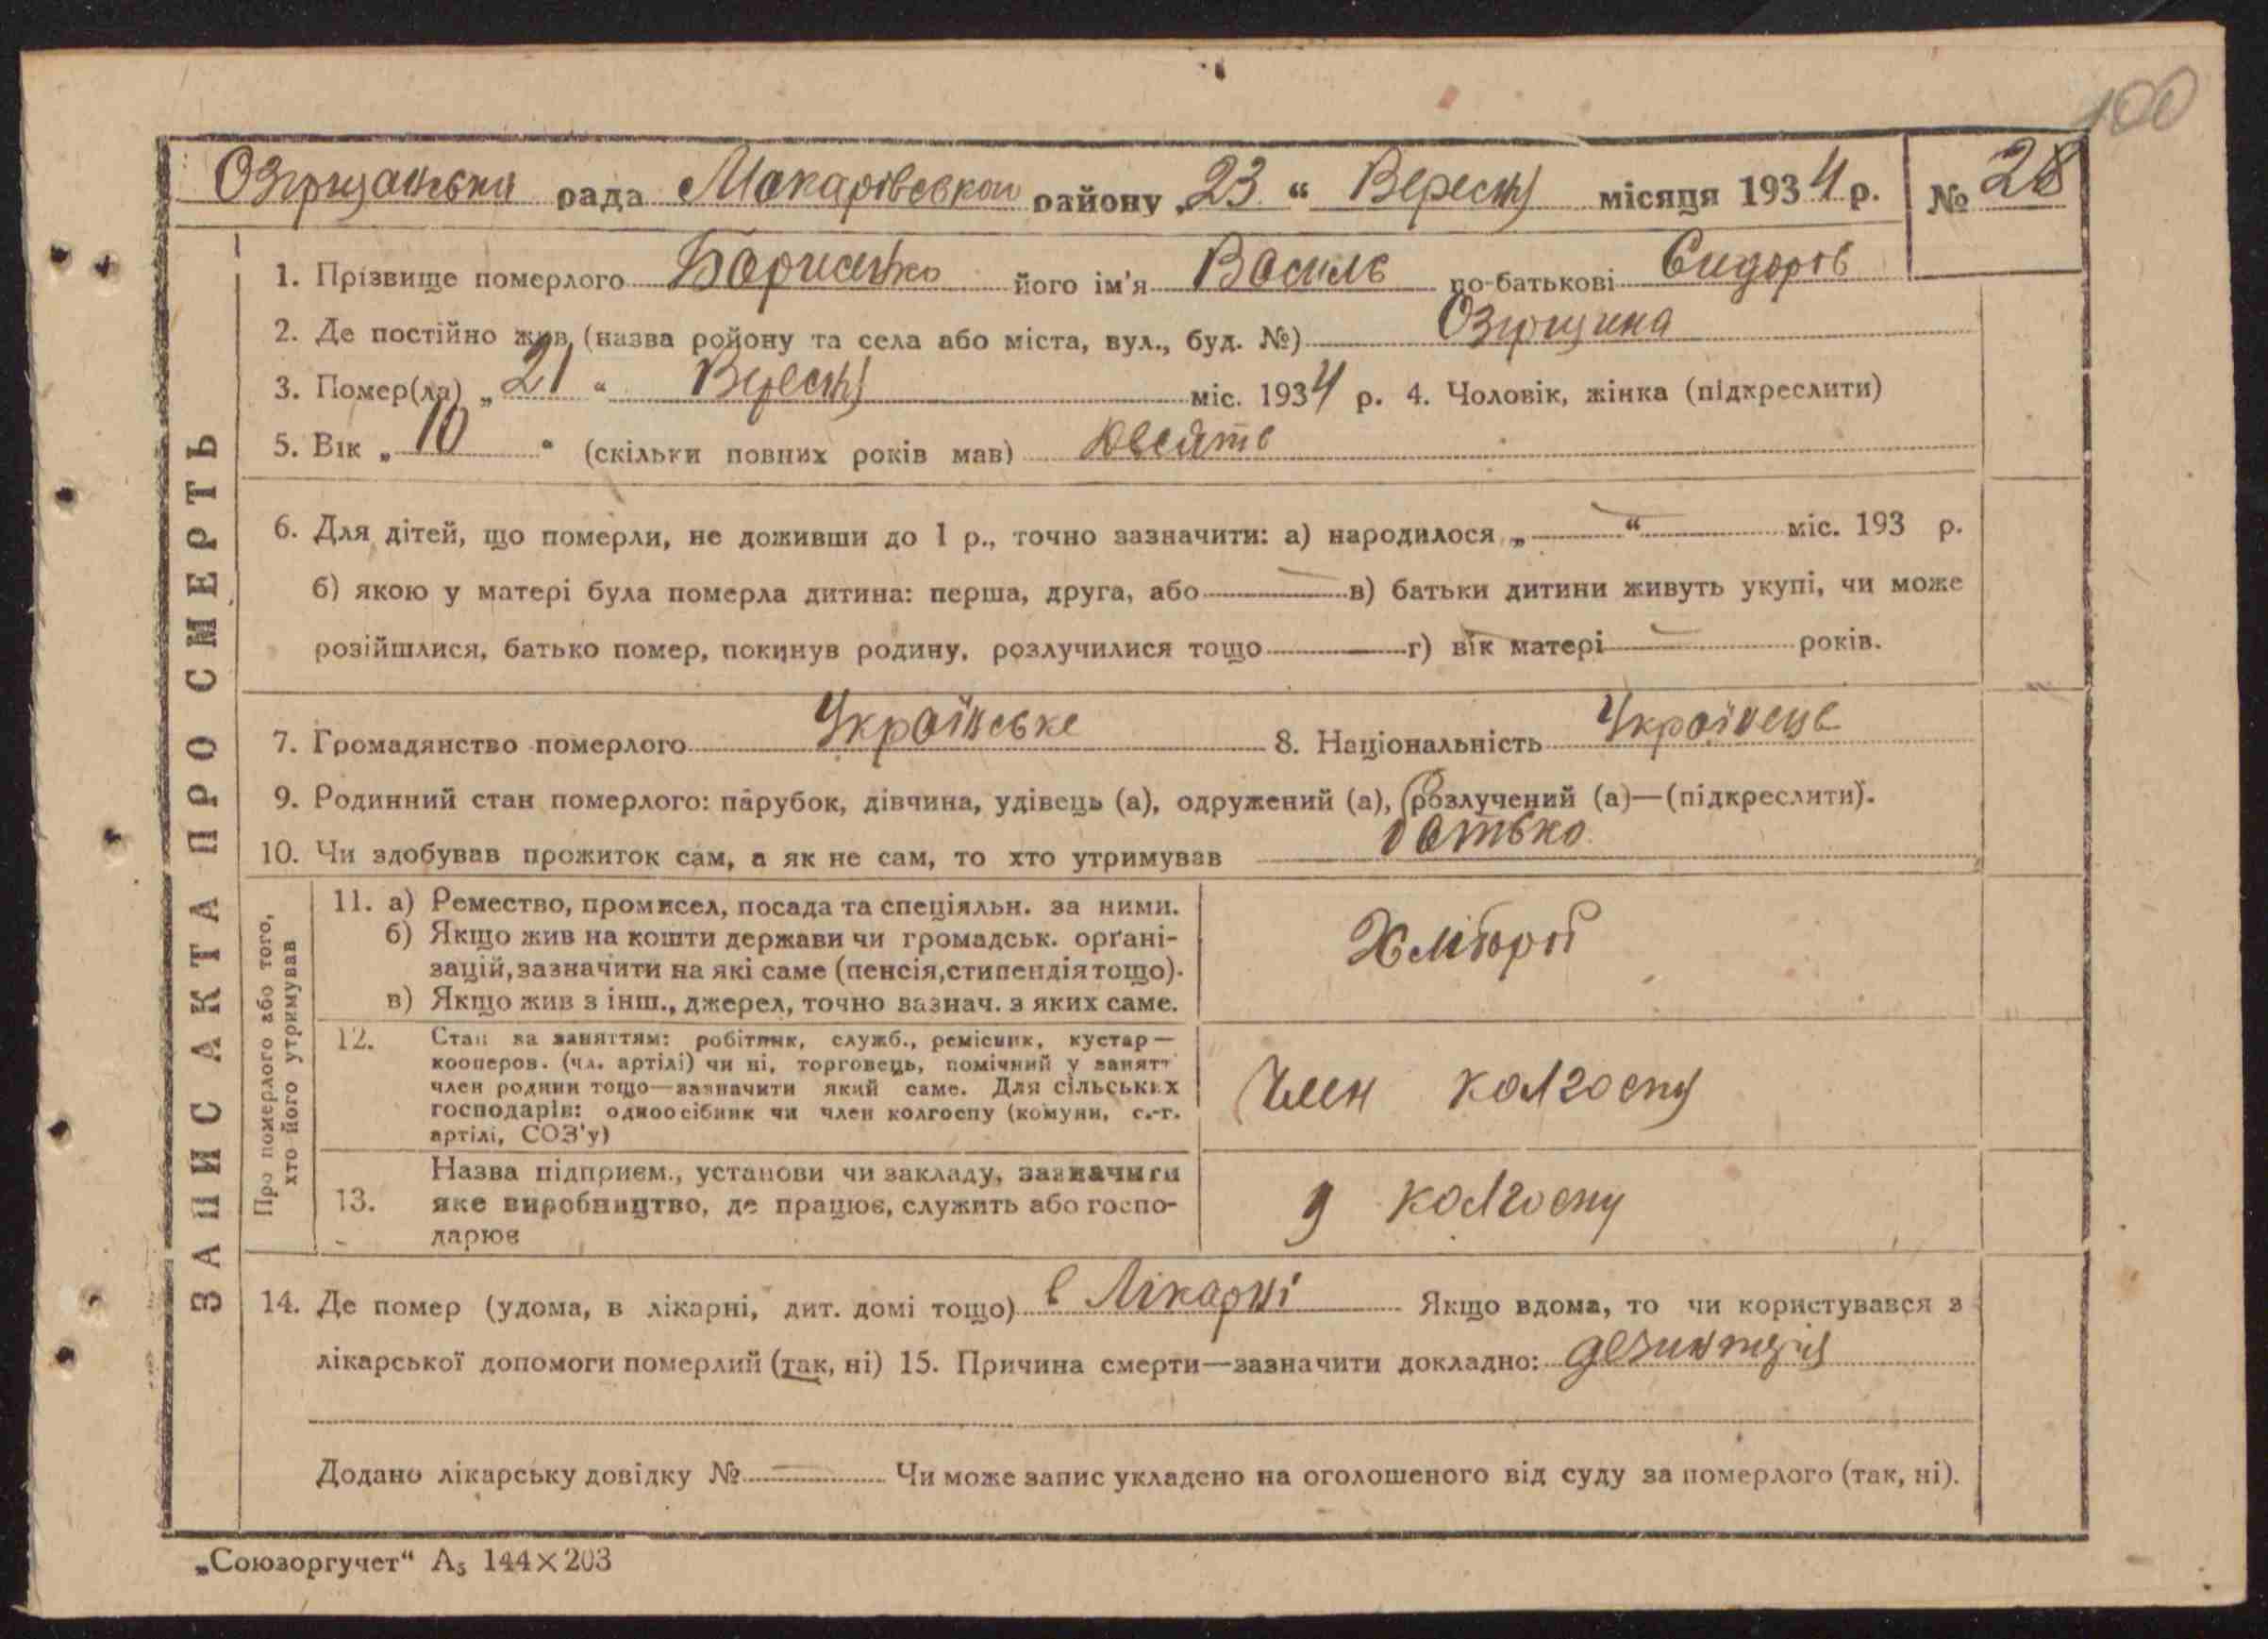 100
Озірщанська рада Макарівської району „23“ Вересня місяця 1934 р. № 28
ЗАПИС АКТА ПРО СМЕРТЬ
1. Прізвище померлого Борисенко його ім'я Василь по-батькові Сидорів
2. Де постійно жив (назва району та села або міста, вул., буд. №) Озірщина
3. Помер(ла) „21“ Вересня міс. 1934 р. 4. Чоловік, жінка (підкреслити)
5. Вік „10“ (скільки повних років мав)
6. Для дітей, що померли, не доживши до 1 р., точно зазначити: а) народилося „—“ — міс. 193 р.
б) якою у матері була померла дитина: перша, друга, або — в) батьки дитини живуть укупі, чи може
розійшлися, батько помер, покинув родину, розлучилися тощо — г) вік матері — років.
7. Громадянство померлого Українське 8. Національність Українець
9. Родинний стан померлого: парубок, дівчина, удівець (а), одружений (а), розлучений (а)—(підкреслити).
10. Чи здобував прожиток сам, а як не сам, то хто утримував батько
Про померлого або того, хто його утримував
11. а) Ремество, промисел, посада та спеціяльн. за ними.
б) Якщо жив на кошти держави чи громадськ. орґані-
зацій, зазначити на які саме (пенсія, стипендія тощо).
в) Якщо жив з інш., джерел, точно вазнач. з яких саме.
Хлібороб
12. Стан за заняттям: робітник, служб., ремісник, кустар —
кооперов. (чл. артілі) чи ні, торговець, помічний у занятт
член родини тощо—зазначити який саме. Для сільських
господарів: одноосібник чи член колгоспу (комуни, с.-г.
артілі, СОЗ'у)
Член колгоспу
13. Назва підприєм., установи чи закладу, зазначити
яке виробництво, де працює, служить або госпо-
дарює
У колгоспу
14. Де помер (удома, в лікарні, дит. домі тощо) в Лікарні Якщо вдома, то чи користувався з
лікарської допомоги померлий (так, ні) 15. Причина смерти—зазначити докладно: дезинтерія
Додано лікарську довідку № — Чи може запис укладено на оголошеного від суду за померлого (так, ні).
„Союзоргучет“ А₅ 144×203